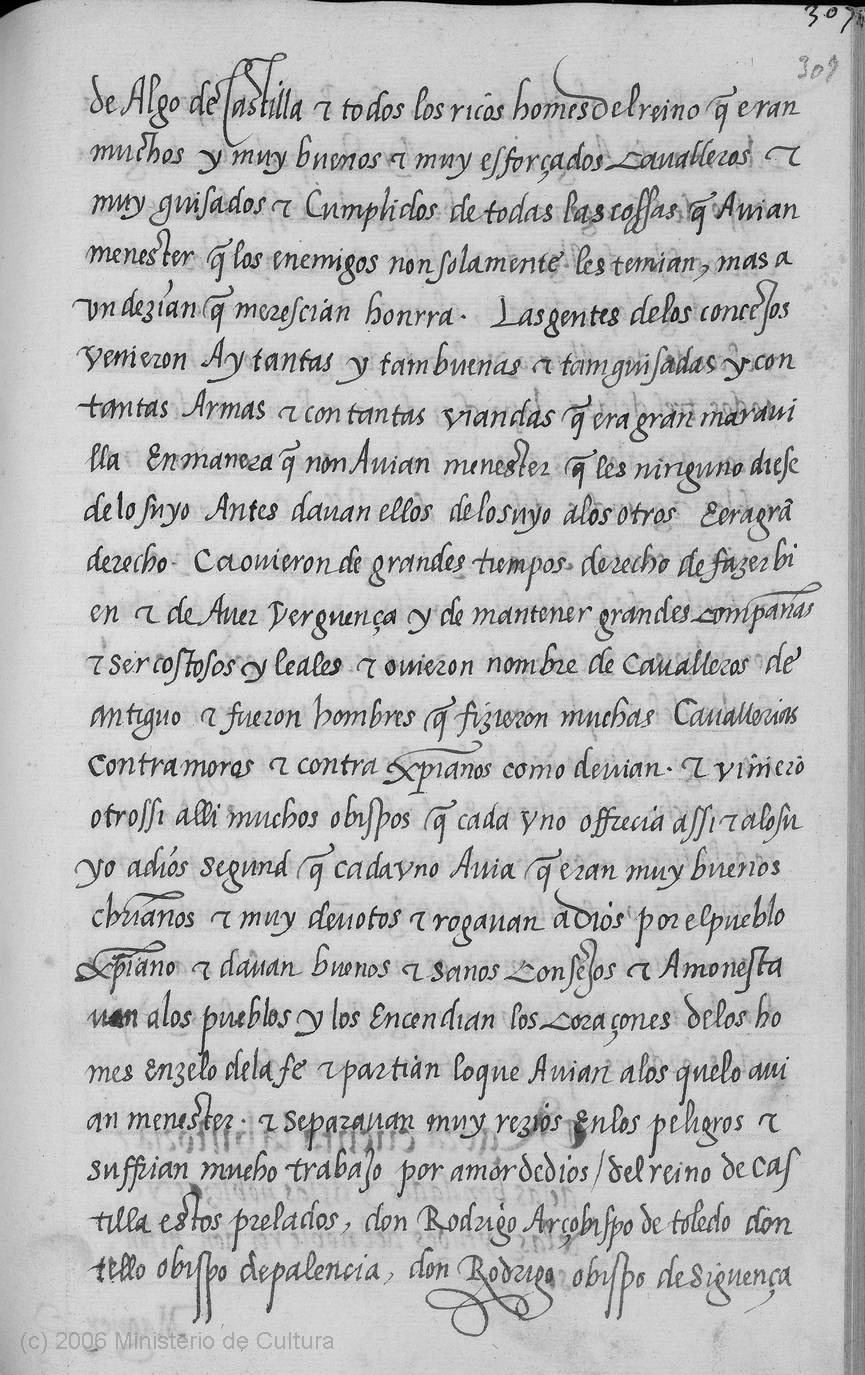 307
309
de Algo de Castilla τ todos los ricos homes del reino q̃ eran
muchos y muy buenos τ muy esforçados Cavalleros τ
muy guisados τ Cumplidos de todas las cossas q̃ Auian
menester q̃ los enemigos non solamente les temian, mas a
vn dezian q̃ merescian honrra. Las gentes de los concejos
venieron Ay tantas y tam buenas τ tam guisadas y con
tantas Armas τ con tantas viandas q̃ era gran maraui
lla En manera q̃ non Auian menester q̃ les ninguno diese
de lo suyo Antes dauan ellos de lo suyo a los otros E era grã
derecho. Ca ouieron de grandes tiempos derecho de fazer bi
en τ de Auer Verguença y de mantener grandes compañas
τ ser costosos y leales τ ouieron nombre de Caualleros de
antiguo τ fueron hombres q̃ fizieron muchas Cauallerias
contra moros τ contra xp̃ianos como deuian. τ vinierõ
otrossi alli muchos obispos q̃ cada vno offrecia assi τ a lo su
yo a diós segund q̃ cada vno Auia q̃ eran muy buenos
chr̃ianos τ muy deuotos τ rogauan a Diós por el pueblo
xp̃iano τ dauan buenos τ sanos Consejos τ Amonesta
uan a los pueblos y los Encendian los Coraçones de los ho
mes En zelo de la fe τ partian lo que Auian a los que lo aui
an menester. τ se parauan muy rezios En los peligros τ
suffrian mucho trabajo por amor de dios / del reino de Cas
tilla estos prelados, don Rodrigo Arçobispo de toledo don
tello obispo de palencia, don Rodrigo obispo de Siguença
(c) 2006 Ministerio de Cultura